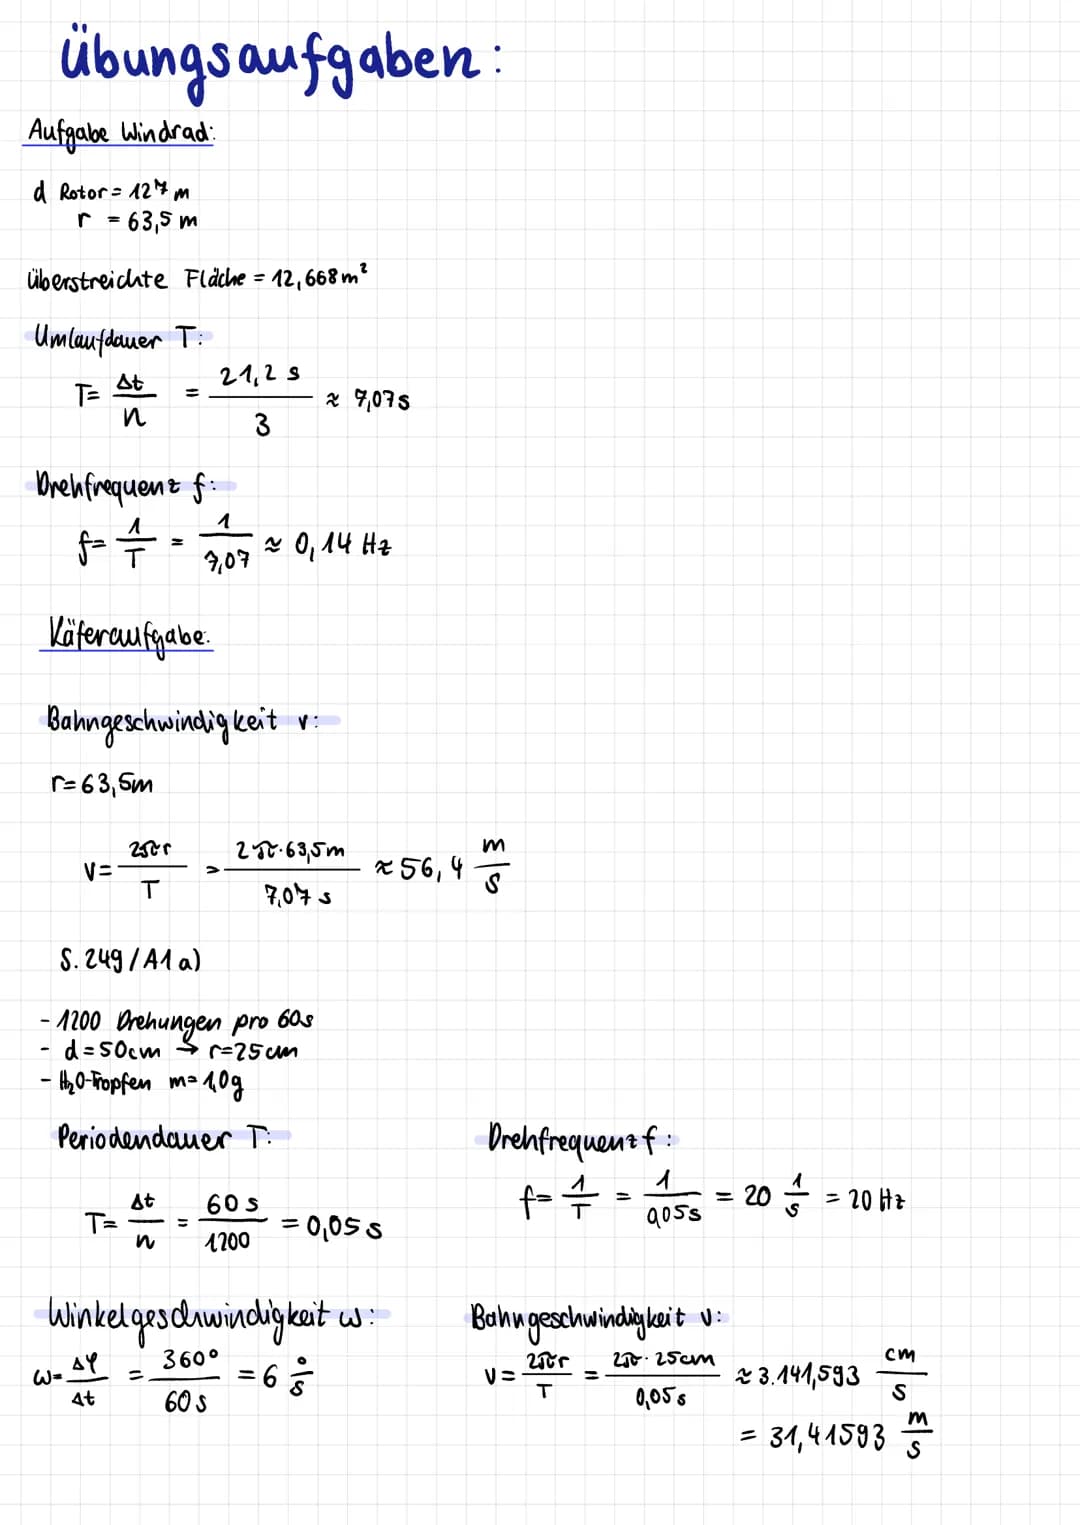 Übungsaufgaben:
Aufgabe Windrad:
d Rotor = 127 m
r = 63,5 m
überstreichte Fläche = 12,668 m²
Umlaufdauer T:
T = Δt/n = 21,2 s/3 ≈ 7,07 s
Drehfrequenz f:
f = 1/T = 1/7,07 ≈ 0,14 Hz
Käferaufgabe:
Bahngeschwindigkeit v:
r = 63,5m
v = 2πr/T = 2π·63,5m/7,07 s ≈ 56,4 m/s
S. 249 / A1 a)
- 1200 Drehungen pro 60s
- d = 50cm → r = 25 cm
- H₂O-Tropfen m = 1,0g
Periodendauer T:
T = Δt/n = 60 s/1200 = 0,05 s
Drehfrequenz f:
f = 1/T = 1/0,05s = 20 1/s = 20 Hz
Winkelgeschwindigkeit ω:
ω = Δφ/Δt = 360°/60 s = 6 °/s
Bahngeschwindigkeit v:
v = 2πr/T = 2π·25cm/0,05 s ≈ 3.141,593 cm/s
= 31,41593 m/s